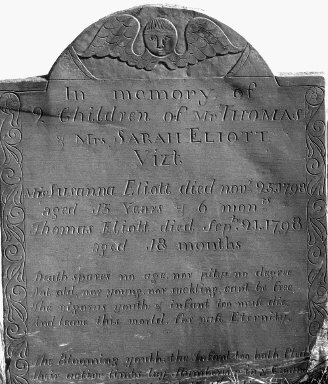 In memory of
2 Children of Mr THOMAS
& Mrs SARAH ELIOTT
Vizt
Miss Susanna Eliott died novr 25, 1798
aged 15 Years & 6 mons
Thomas Eliott died Septr 21, 1798
aged 18 months
Death spares no age, nor pitys no degree
Not old, nor young, nor suckling, can't be free
The vigorus youth & infant too must die
And leave this world, for vast Eternity.
The Blooming youth, the Infant too both
Their active limbs lay